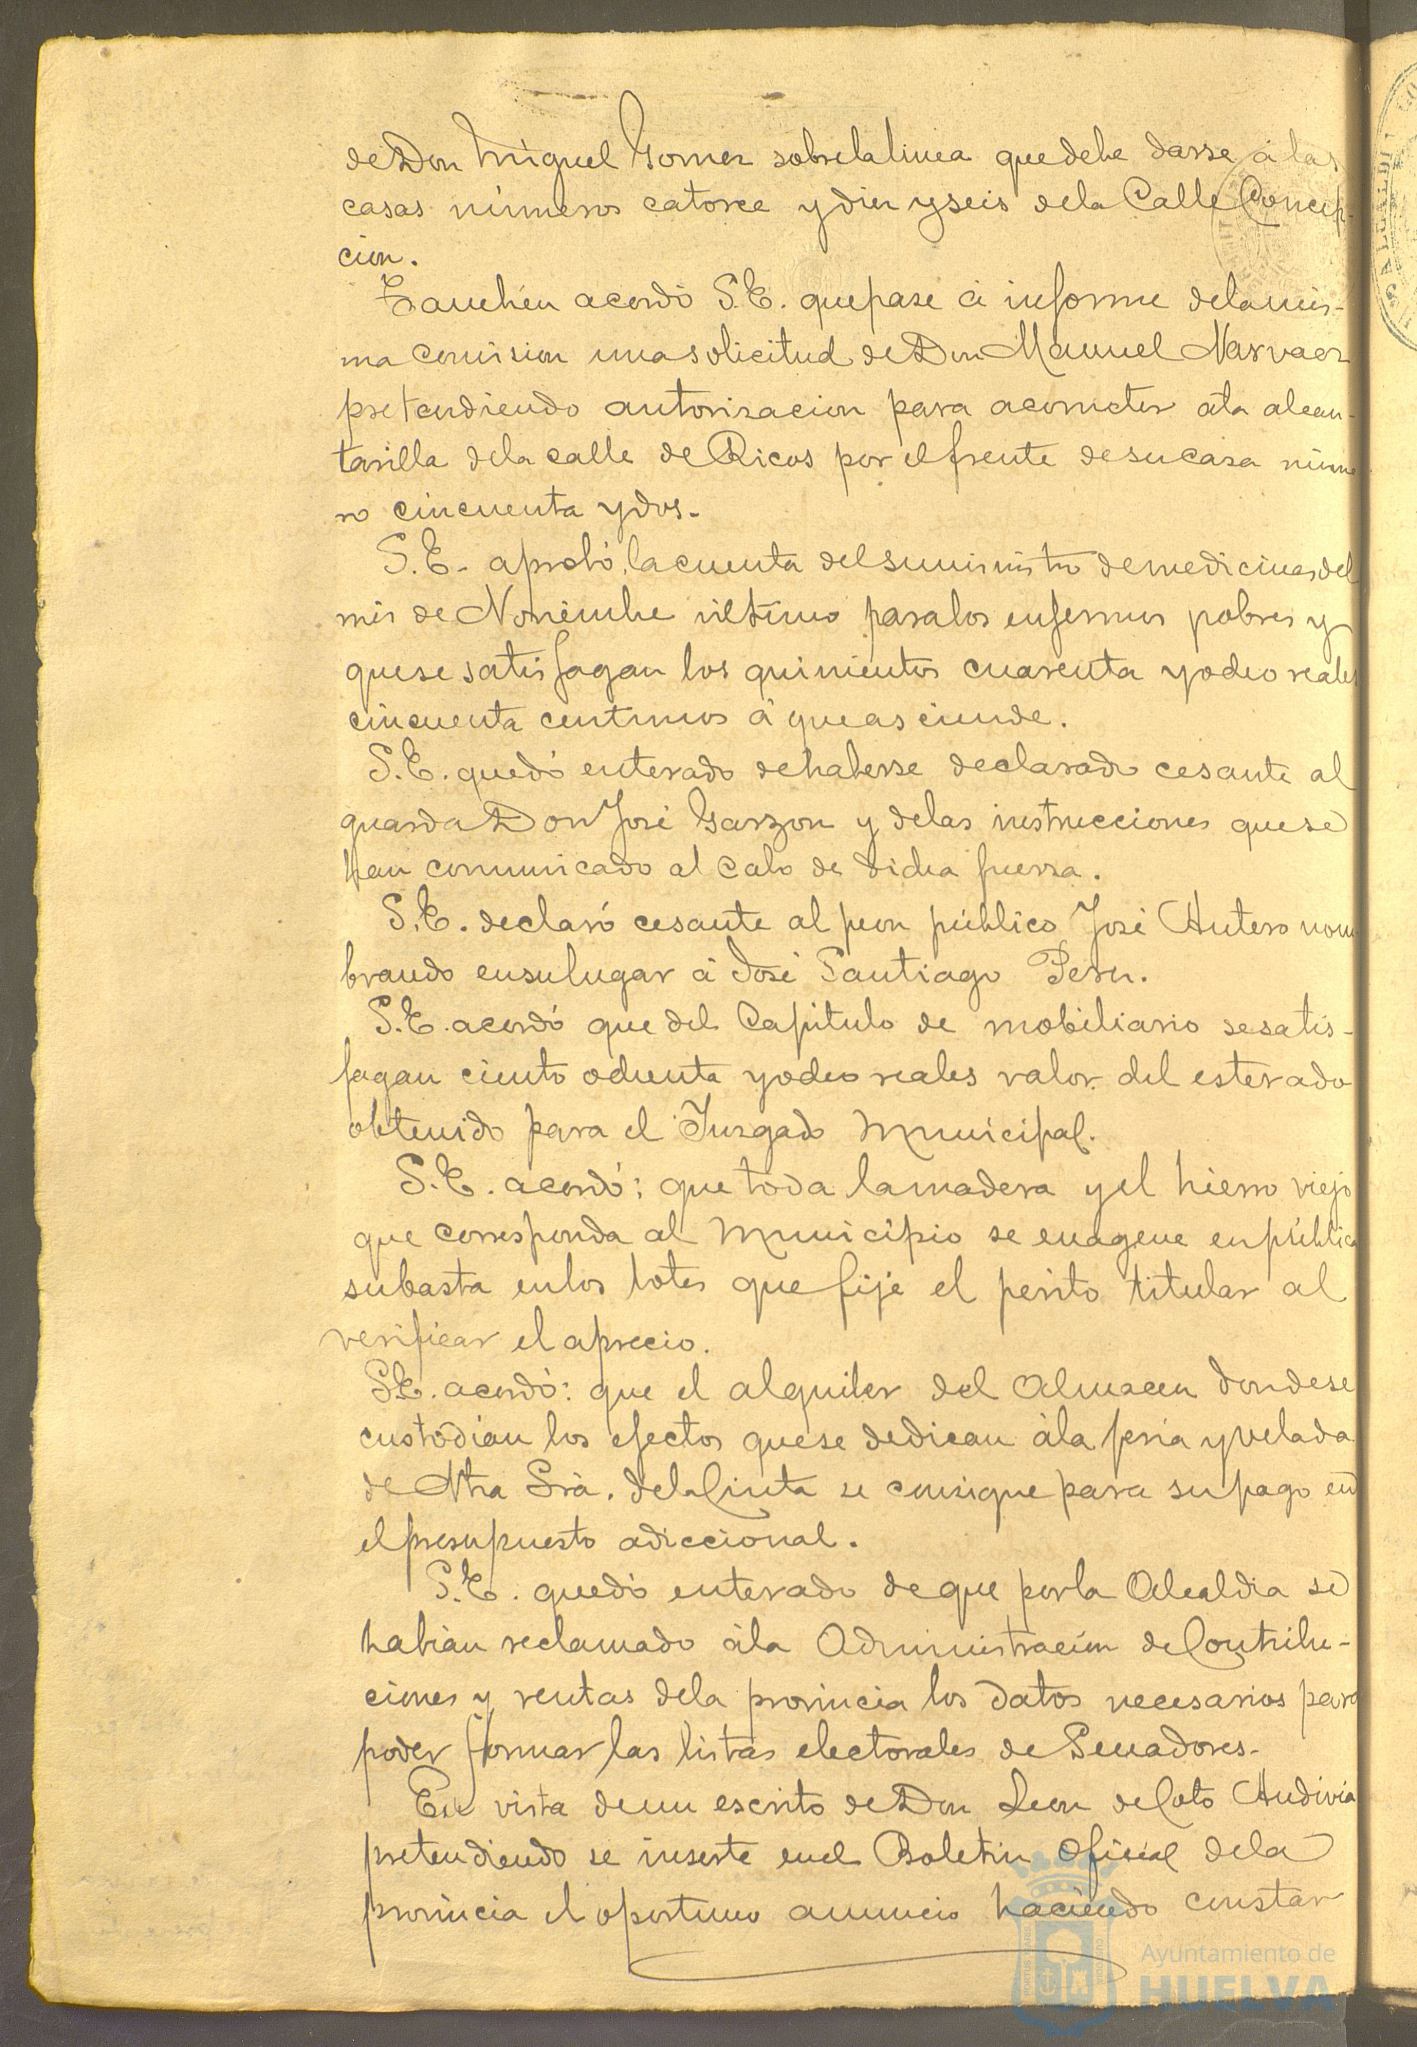 de Don Miguel Gomez sobre la linea que debe darse á las
casas números catorce y diez y seis de la Calle Concep-
cion.
Tambien acordó S.E. que pase á informe de la mis-
ma Comision una solicitud de Don Manuel Narvaez
pretendiendo autorizacion para acometer á la alcan-
tarilla de la calle de Ricos por el frente de su casa núme
ro cincuenta y dos.
S.E. aprobó la cuenta del suministro de medicinas del
mes de Noviembre último para los enfermos pobres y
que se satisfagan los quinientos cuarenta y ocho reales
cincuenta centimos á que asciende.
S.E. quedó enterado de haberse declarado cesante al
guarda Don José Garzon y de las instrucciones que se
han comunicado al Cabo de dicha fuerza.
S.E. declaró cesante al peon público José Antero nom
brando en su lugar á José Santiago
S.E. acordó que del Capitulo de mobiliario se satis-
fagan ciento ochenta y ocho reales valor del esterado
obtenido para el Juzgado Municipal.
S.E. acordó: que toda la madera y el hierro viejo
que corresponda al Municipio se enagene en pública
subasta en los lotes que fije el perito titular al
verificar el aprecio.
S.E. acordó: que el alquiler del Almacen donde se
custodian los efectos que se dedican á la feria y velada
de Ntra Sra. de la Cinta se consigne para su pago en
el presupuesto adiccional.
S.E. quedó enterado de que por la Alcaldia se
habian reclamado á la Administracion de Contribu-
ciones y rentas de la provincia los datos necesarios para
poder formar las listas electorales de Senadores.
En vista de un escrito de Don Leon de Coto Andivia
pretendiendo se inserte en el Boletin Oficial de la
provincia el oportuno anuncio haciendo constar
Ayuntamiento de
HUELVA